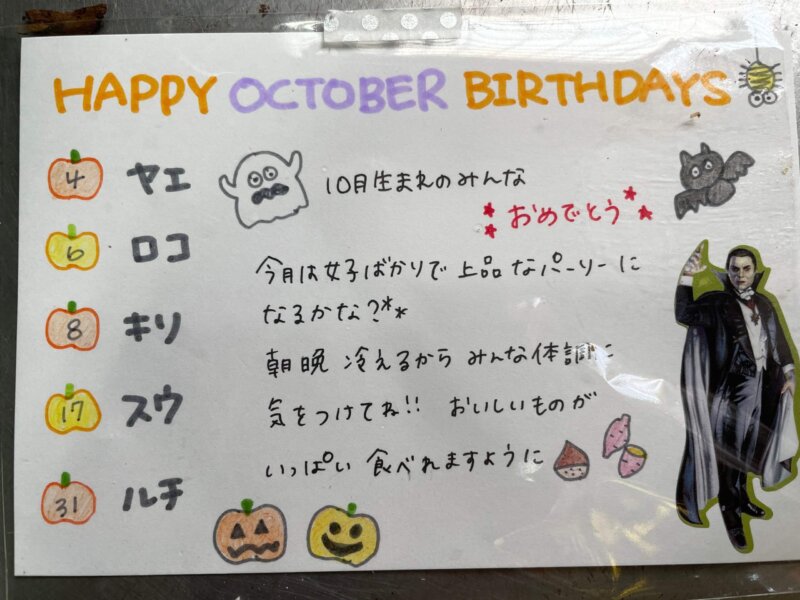 HAPPY OCTOBER BIRTHDAYS
4 ヤエ
6 ロコ
8 キリ
17 スウ
31 ルチ
10月生まれのみんな
おめでとう
今月は女子ばかりで上品なパーリーに
なるかな?**
朝晩 冷えるから みんな体調に
気をつけてね!! おいしいものが
いっぱい 食べれますように